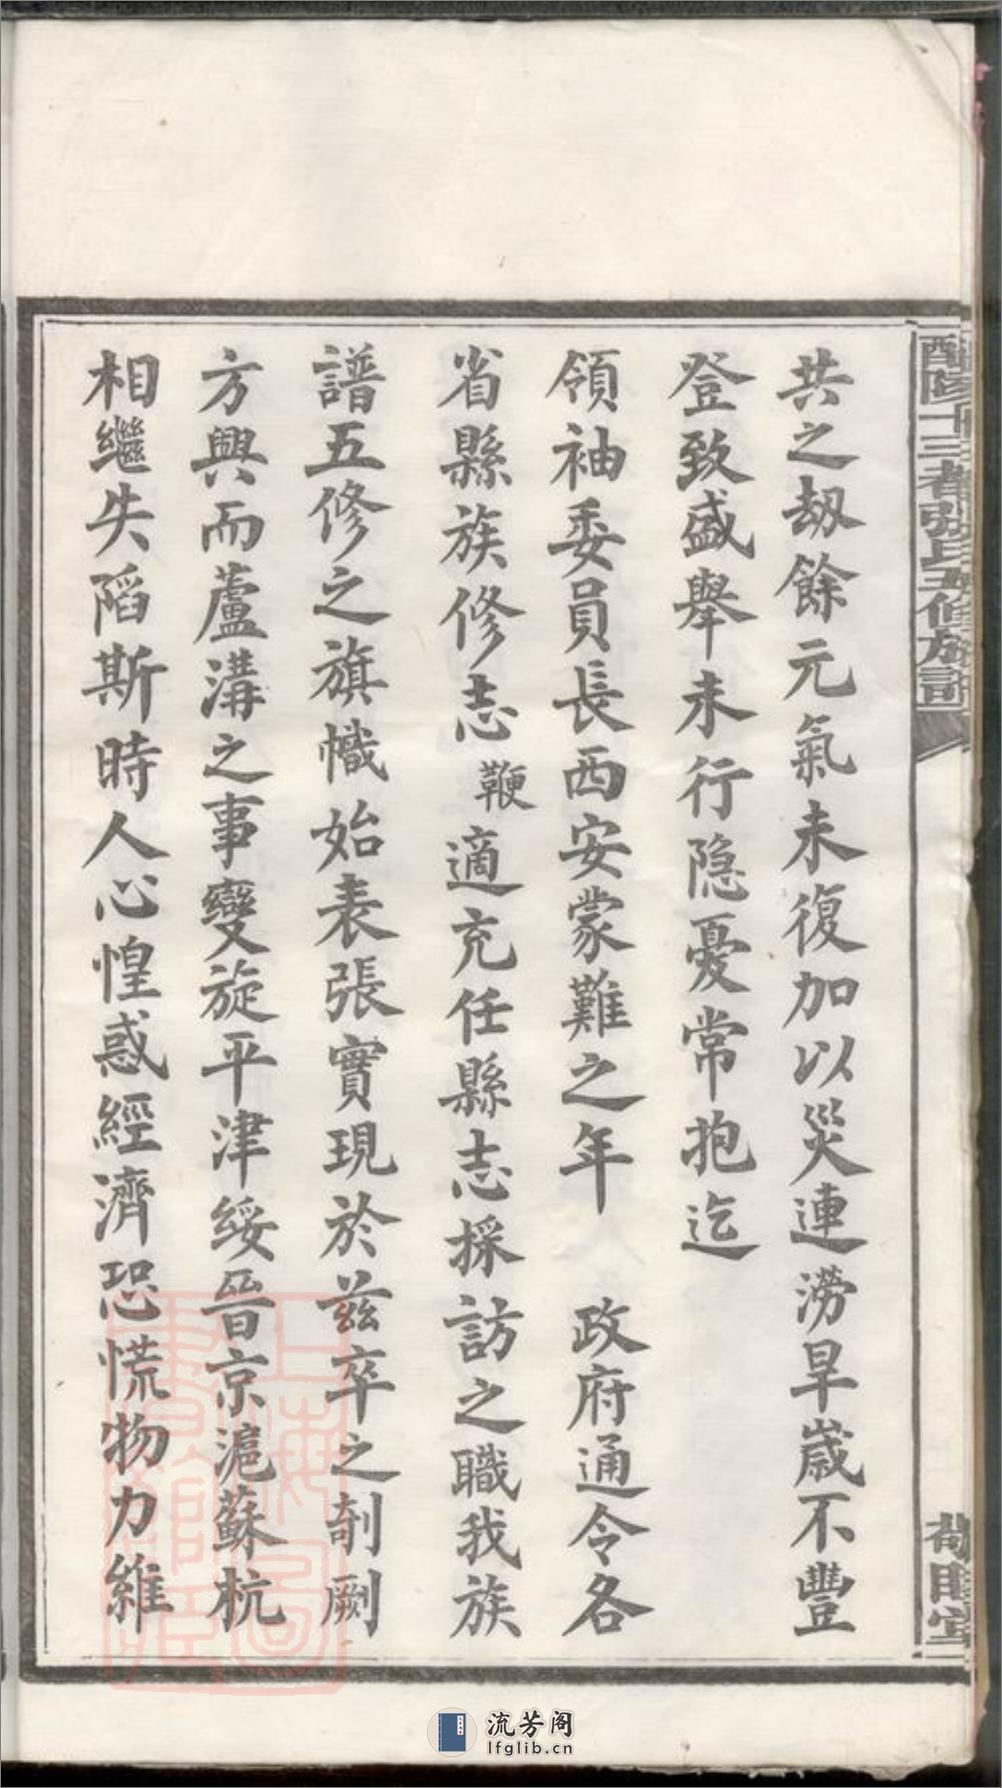 共之刼餘元氣未復加以災連澇旱歲不豐
登致盛舉未行隐憂常抱迄
領袖委員長西安蒙難之年 政府通令各
省縣族修志鞭適充任縣志採訪之職我族
譜五修之旗幟始表張實現於兹卒之剞劂
方興而蘆溝之事變旋平津綏晉京滬蘇杭
相繼失陷斯時人心惶惑經濟恐慌物力維
十三都張氏五修族譜
上海圖書館藏
流芳阁
lfglib.cn